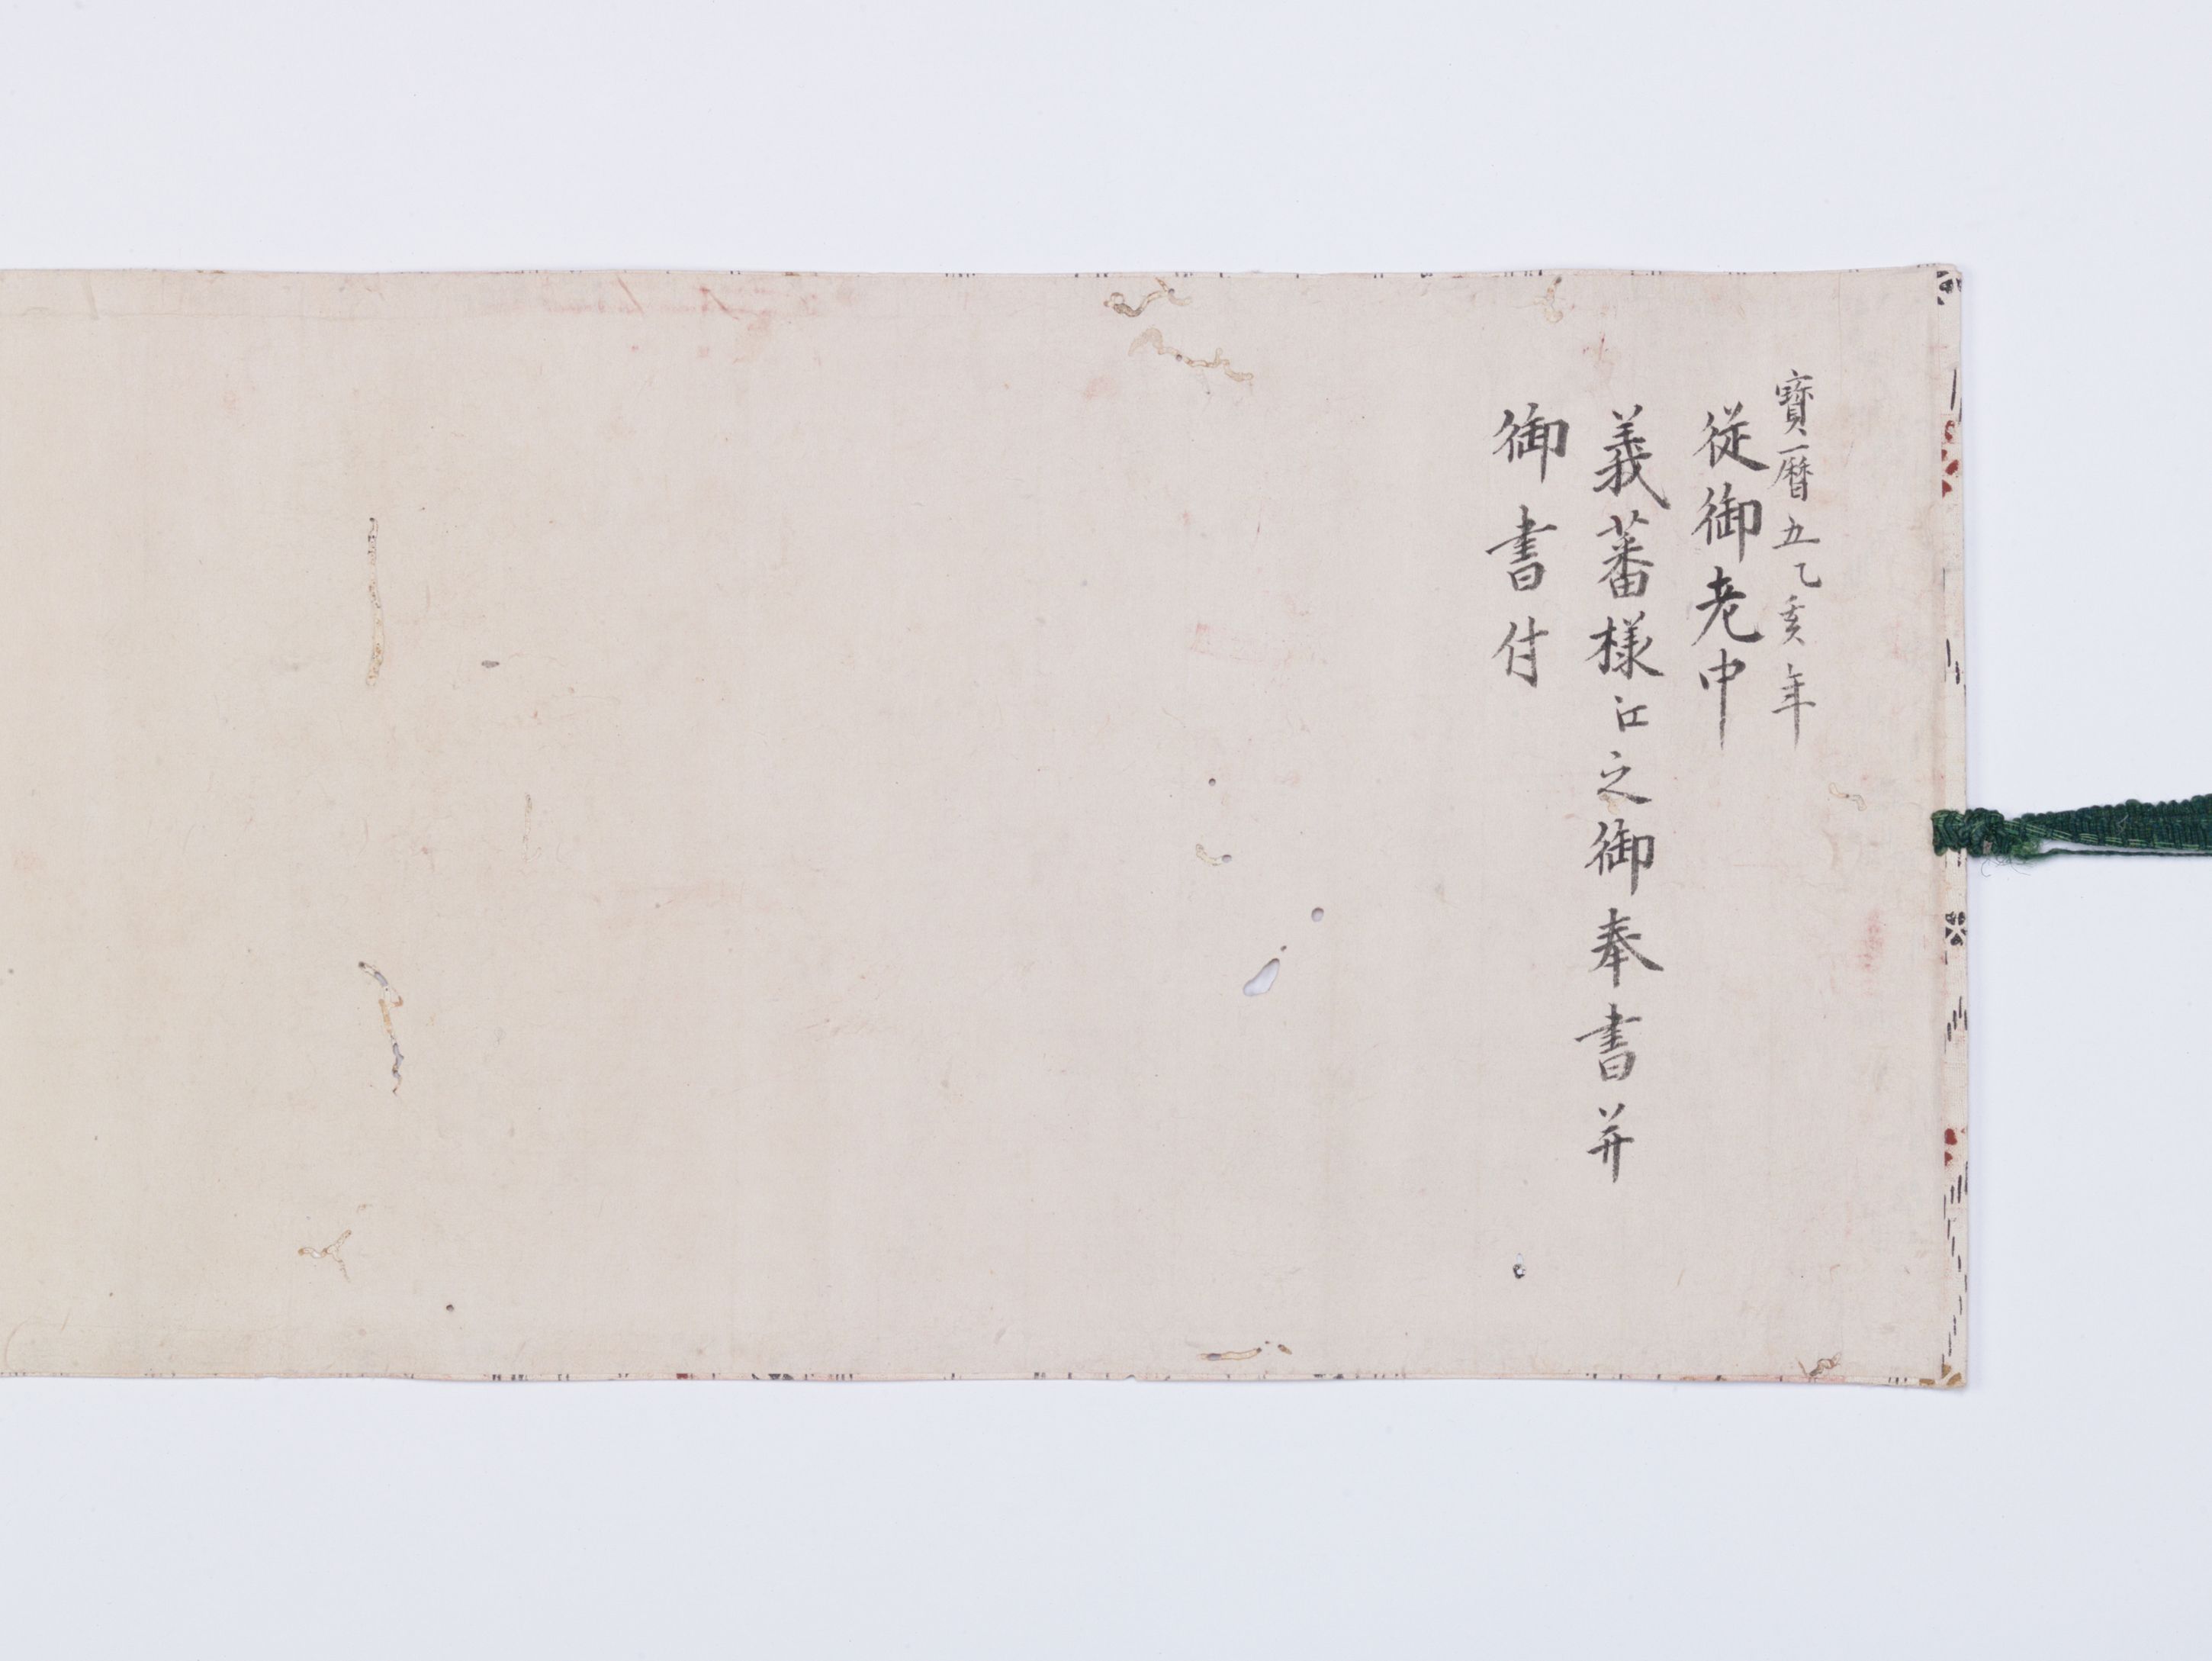 寶暦五乙亥年
従御老中
義蕃様江之御奉書并
御書付